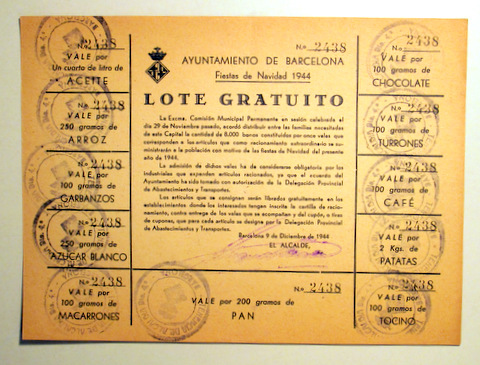 N.o 2438
VALE por
Un cuarto de litro de
ACEITE
N.o 2438
VALE por
250 gramos de
ARROZ
N.o 2438
VALE por
100 gramos de
GARBANZOS
N.o 2438
VALE por
250 gramos de
AZUCAR BLANCO
N.o 2438
VALE por
100 gramos de
MACARRONES
N.o 2438
AYUNTAMIENTO DE BARCELONA
Fiestas de Navidad 1944
LOTE GRATUITO
La Excma. Comisión Municipal Permanente en sesión celebrada el
día 29 de Noviembre pasado, acordó distribuir entre las familias necesitadas
de esta Capital la cantidad de 8.000 lotes constituidos por once vales que
corresponden a los artículos que como racionamiento extraordinario se sumi-
nistrarán a la población con motivo de las fiestas de Navidad del presente
año de 1944.
La admisión de dichos vales ha de considerarse obligatoria por los
industriales que expenden artículos racionados, ya que el acuerdo del
Ayuntamiento ha sido tomado con autorización de la Delegación Provincial
de Abastecimientos y Transportes.
Los artículos que se consignan serán librados gratuitamente en los
establecimientos donde los interesados tengan inscrita la cartilla de racio-
namiento, contra entrega de los vales que se acompañan y del cupón, o tiras
de cupones, que para cada artículo se designe por la Delegación Provincial
de Abastecimientos y Transportes.
Barcelona 9 de Diciembre de 1944
EL ALCALDE,
N.o 2438
VALE por 200 gramos de
PAN
N.o 2438
VALE por
100 gramos de
CHOCOLATE
N.o 2438
VALE por
100 gramos de
TURRONES
N.o 2438
VALE por
100 gramos de
CAFÉ
N.o 2438
VALE por
2 Kgs. de
PATATAS
N.o 2438
VALE por
100 gramos de
TOCINO